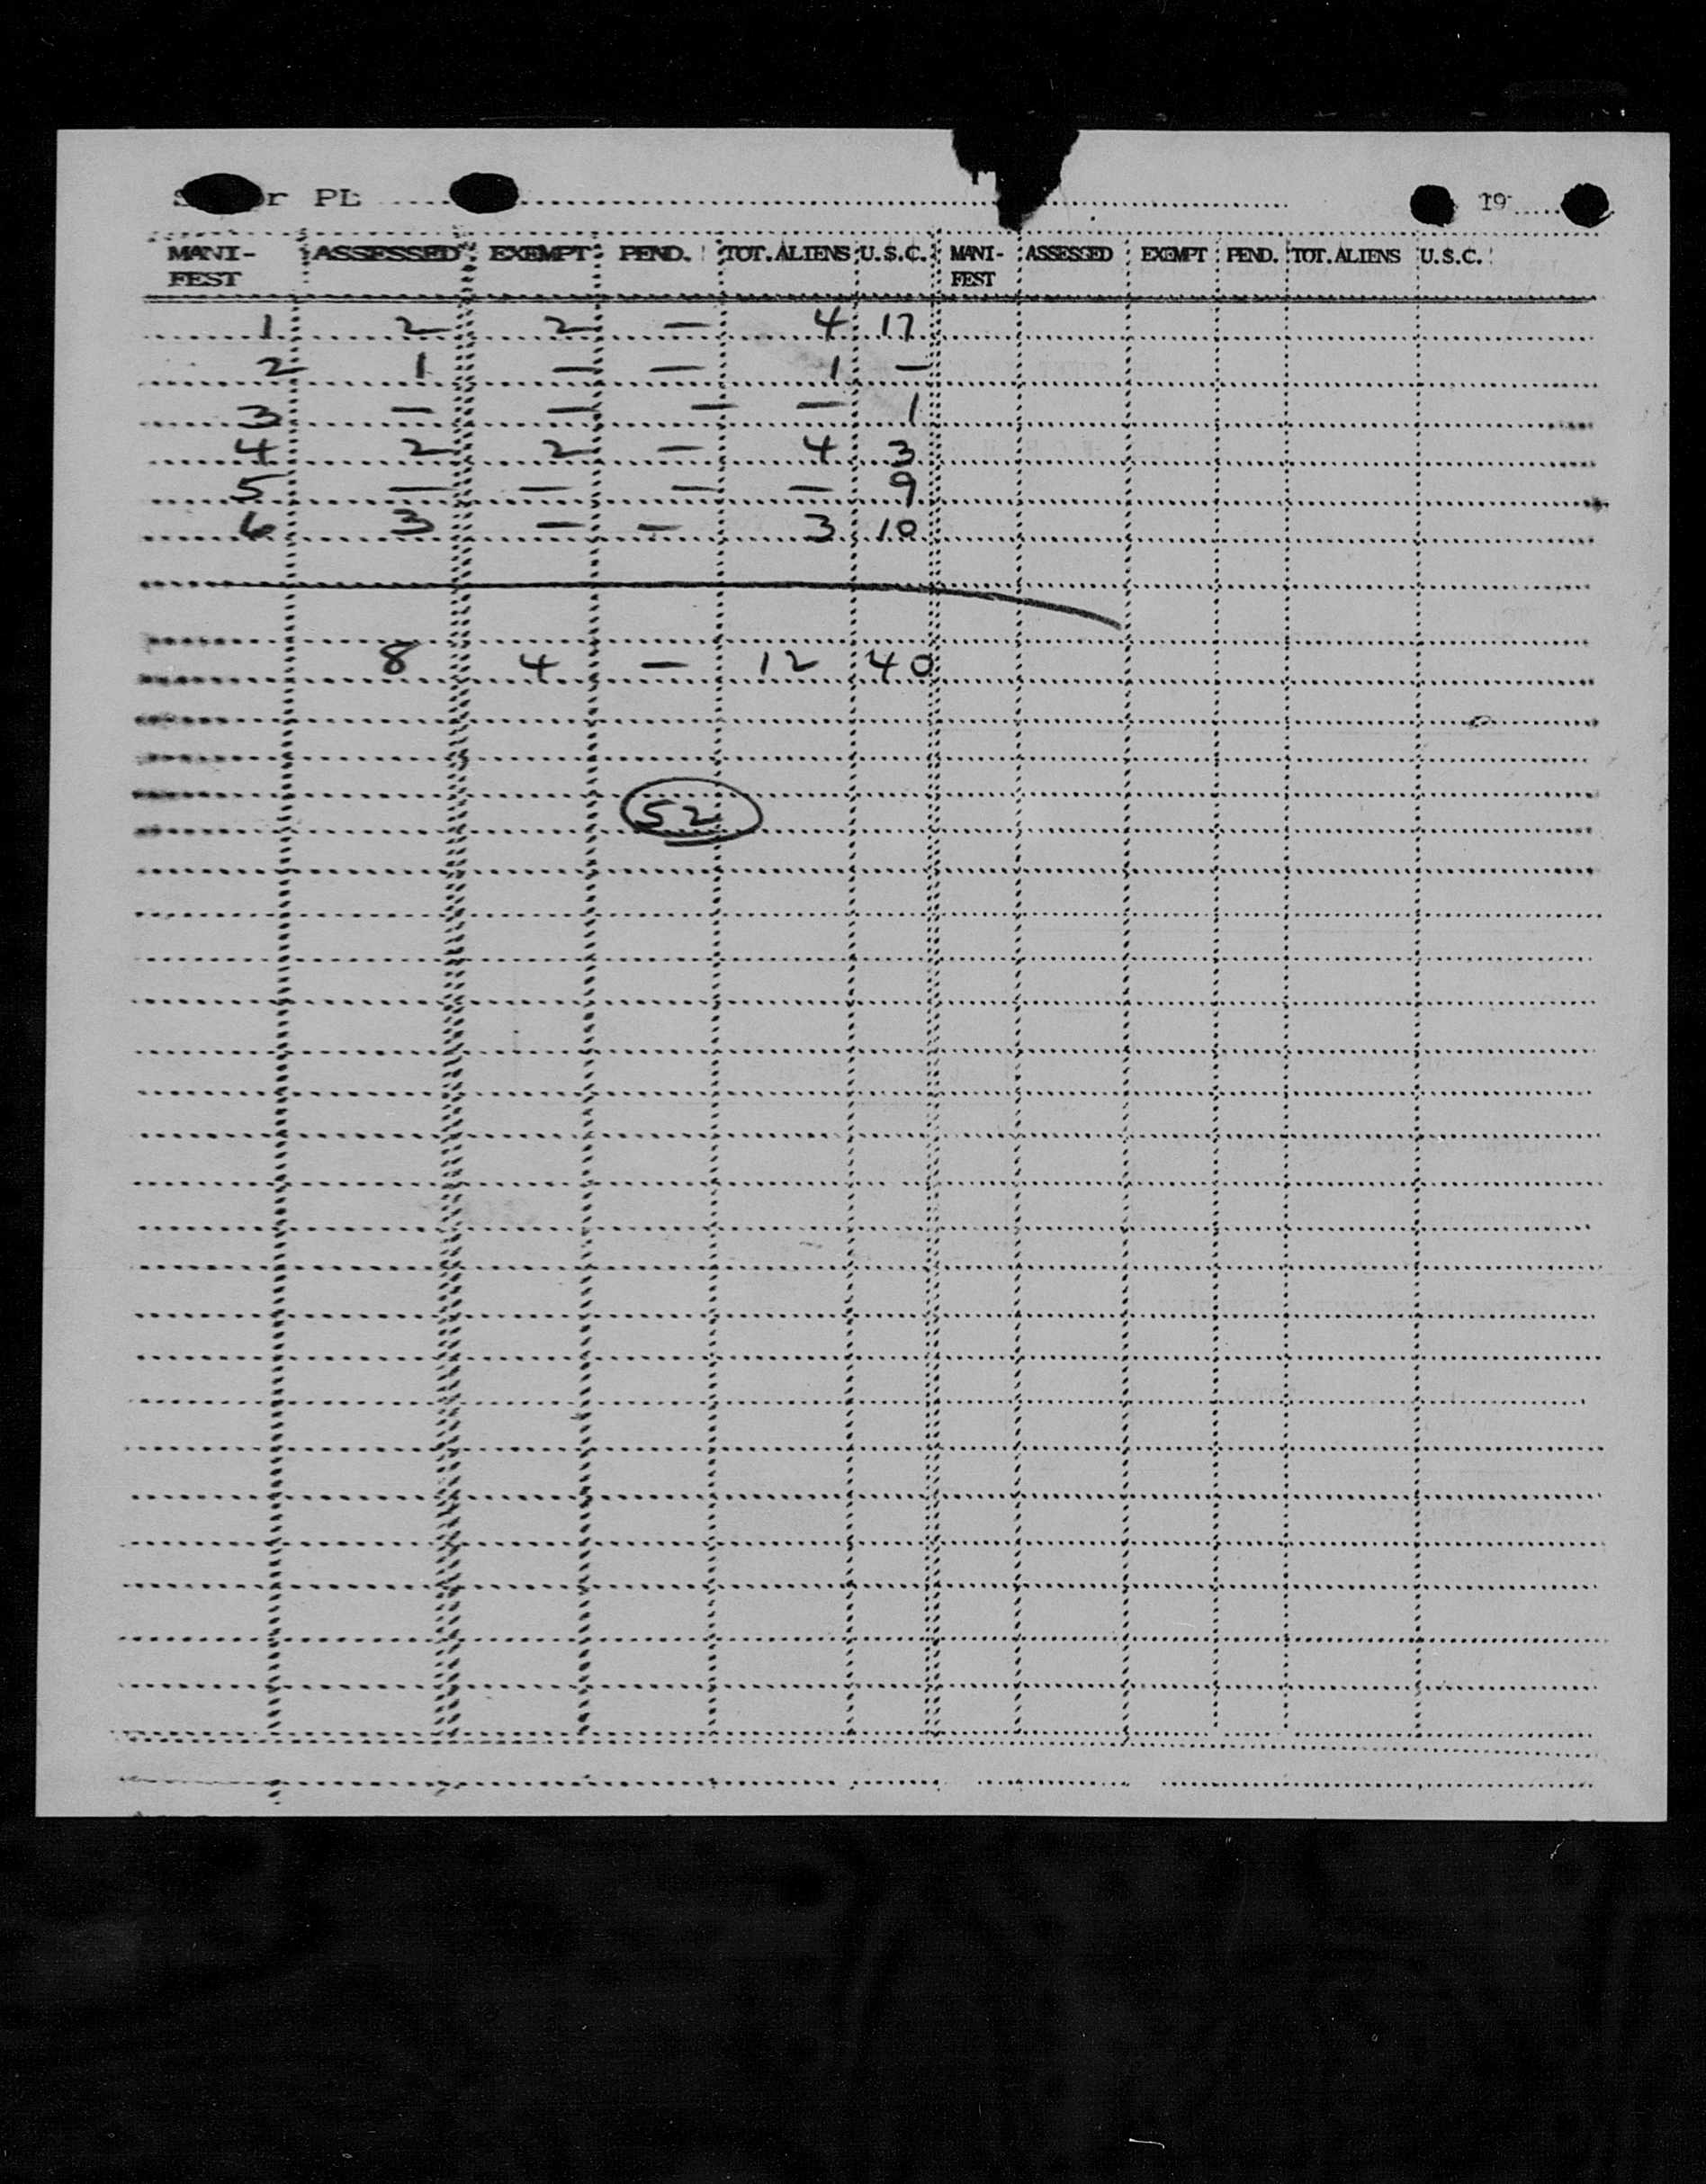 PL 19
MANI- ASSESSED EXEMPT PEND. TOT. ALIENS U.S.C. MANI- ASSESSED EXEMPT PEND. TOT. ALIENS U.S.C.
FEST FEST
1 2 2 — 4 17
2 1 — — 1 —
3 — — — — 1
4 2 2 — 4 3
5 — — — — 9
6 3 — — 3 10
8 4 — 12 40
52